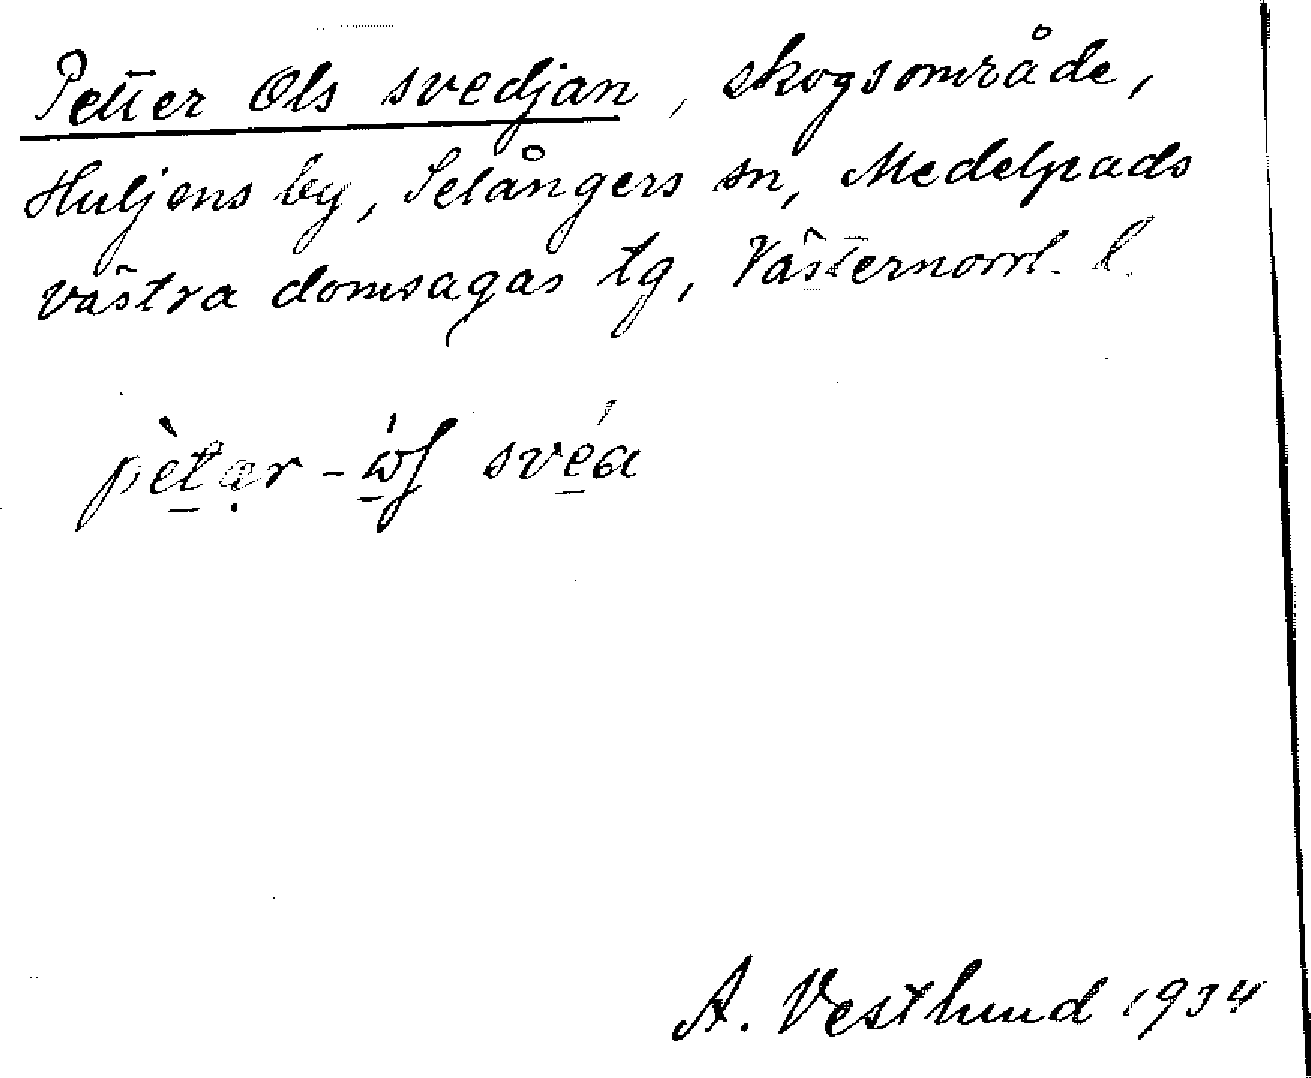 Petter Ols svedjan, skogsområde,
Huljens by, Selångers sn, Medelpads
västra domsagas tg, Västernorrl. l.
pètar - ẃʃ svéa
A. Vestlund 1934